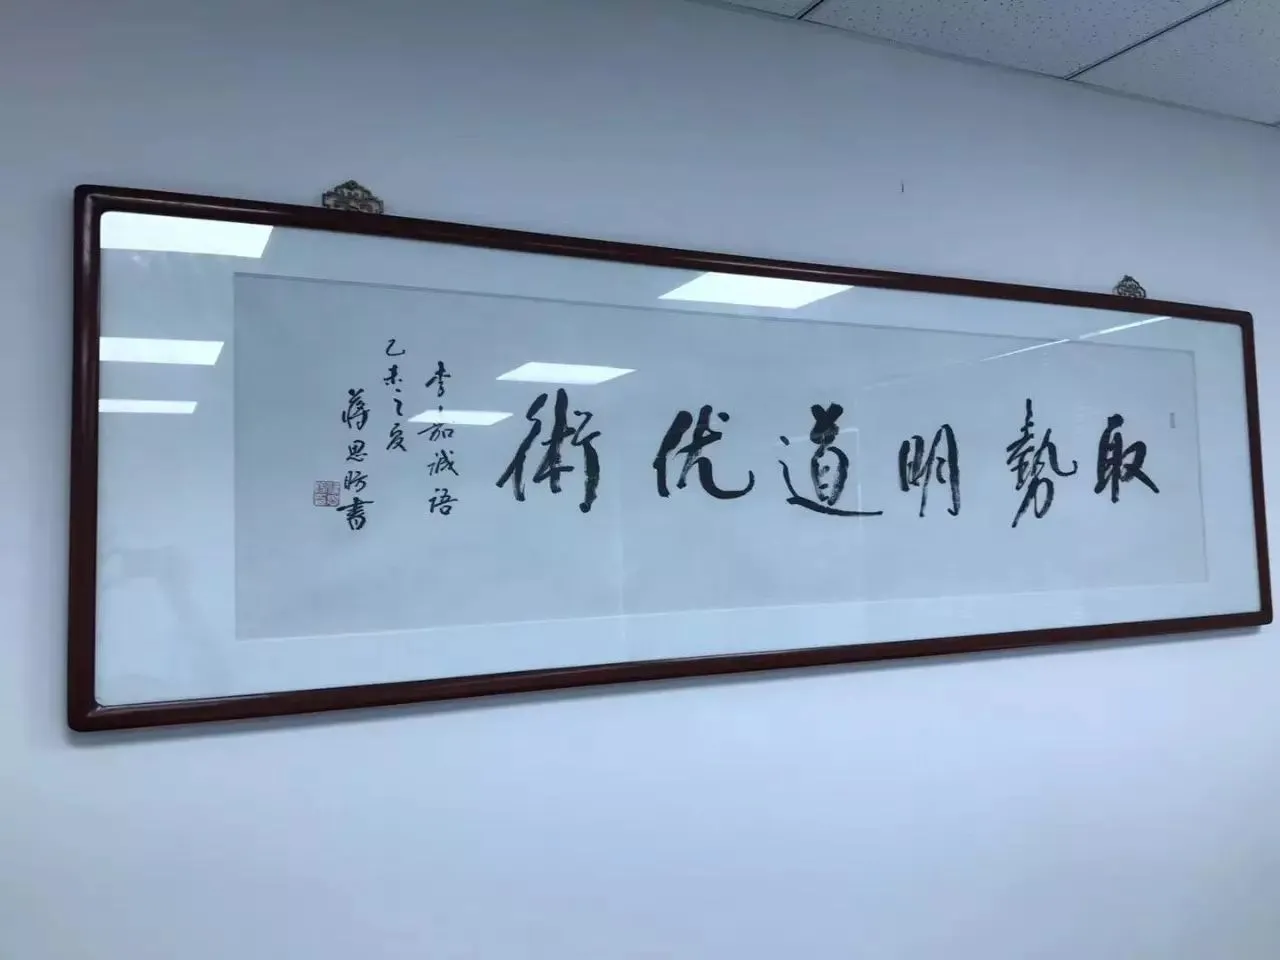 取勢明道优術
李嘉诚語
乙未之夏
蒋思
書